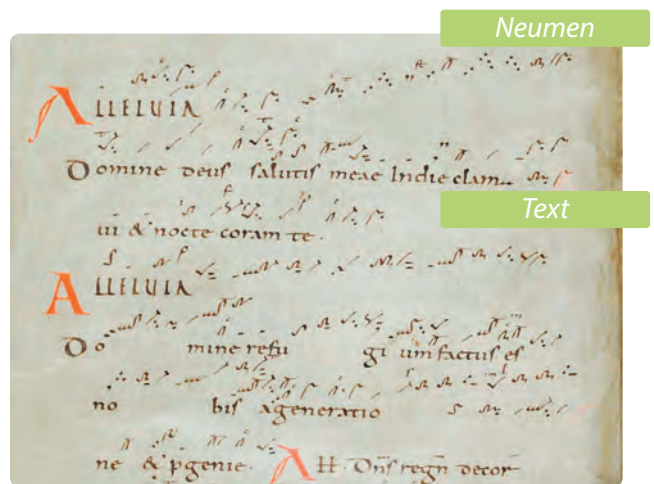 Neumen
ALLELUIA
Domine deus salutis meae Indie clama
Text
ui & nocte coram te.
ALLELUIA
Do mine refu gi um factus es
no bis ageneratio
ne & pgenie. All. Dns regn decor